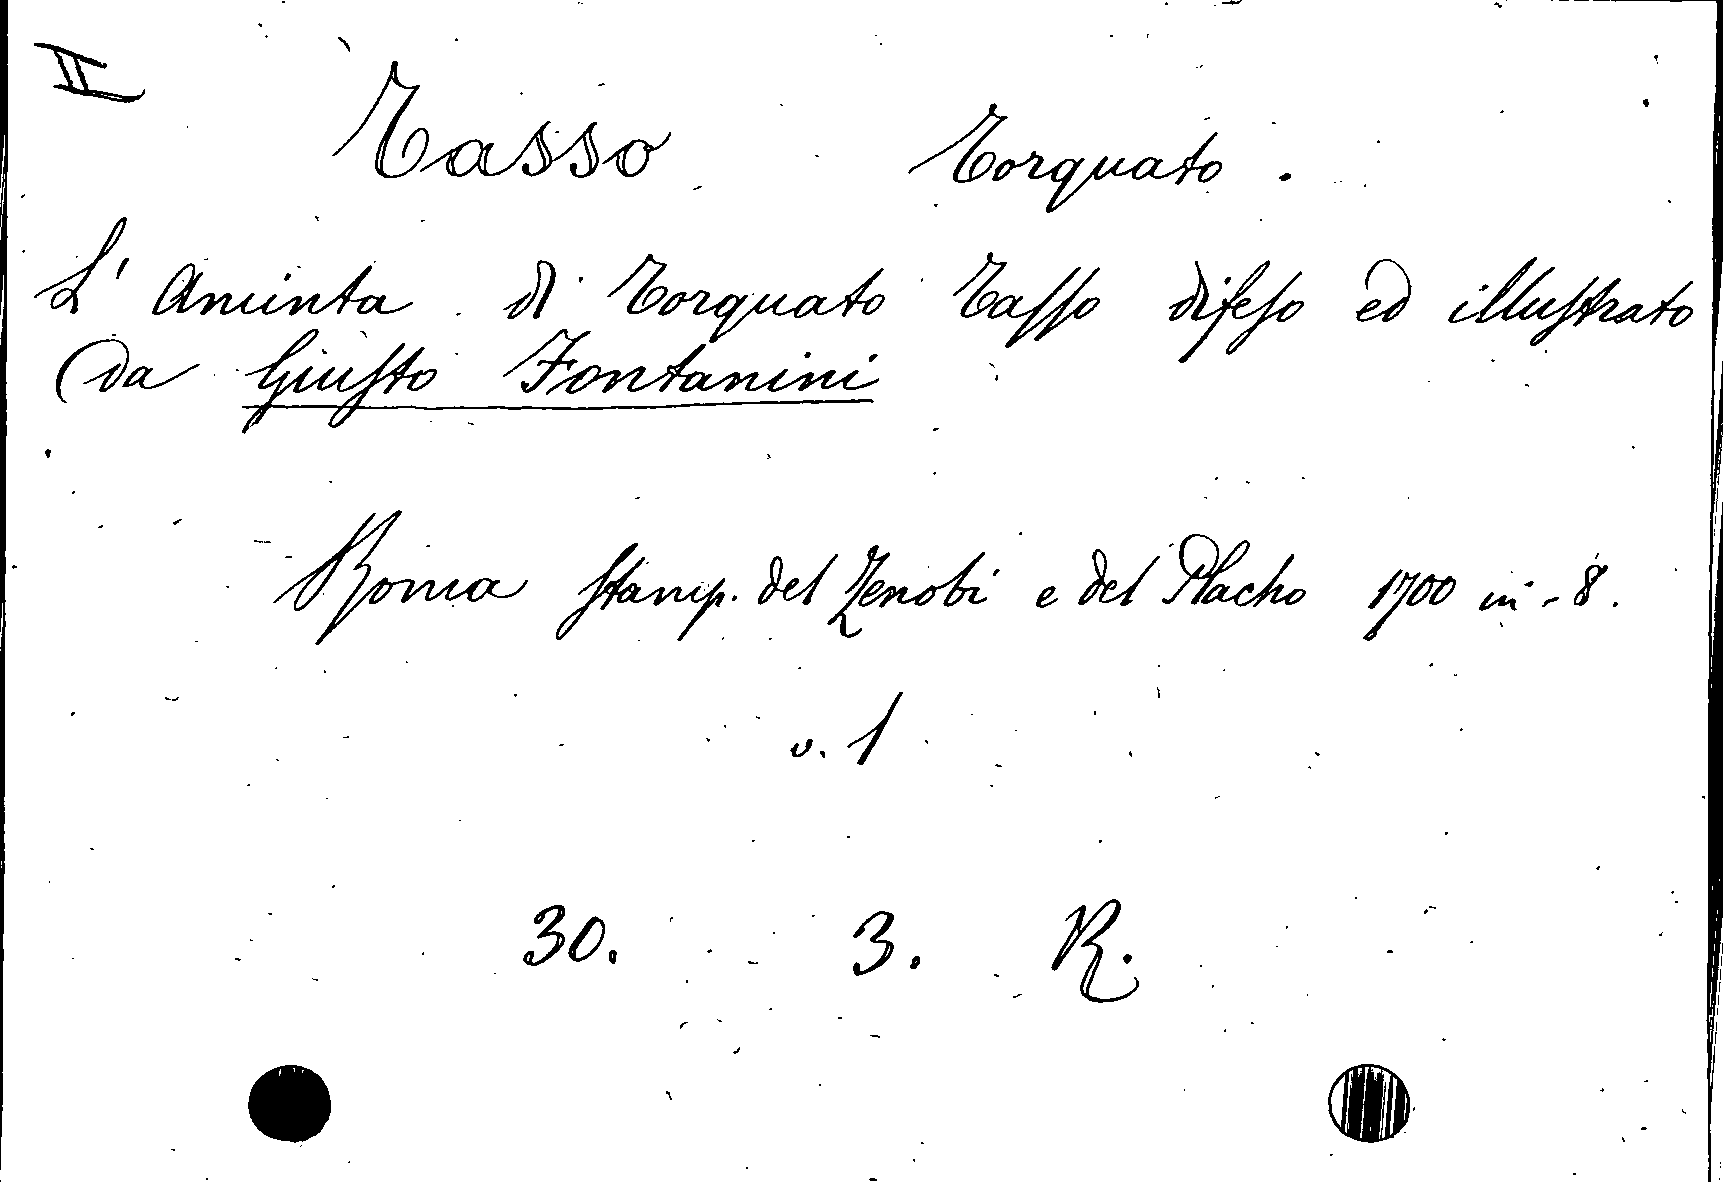 II
Tasso Torquato.
L' Aminta di Torquato Tasso difeso ed illustrato
da Giusto Fontanini
Roma stamp. del Zenobi e del Placho 1700 in-8.
v. 1
30. 3. R.